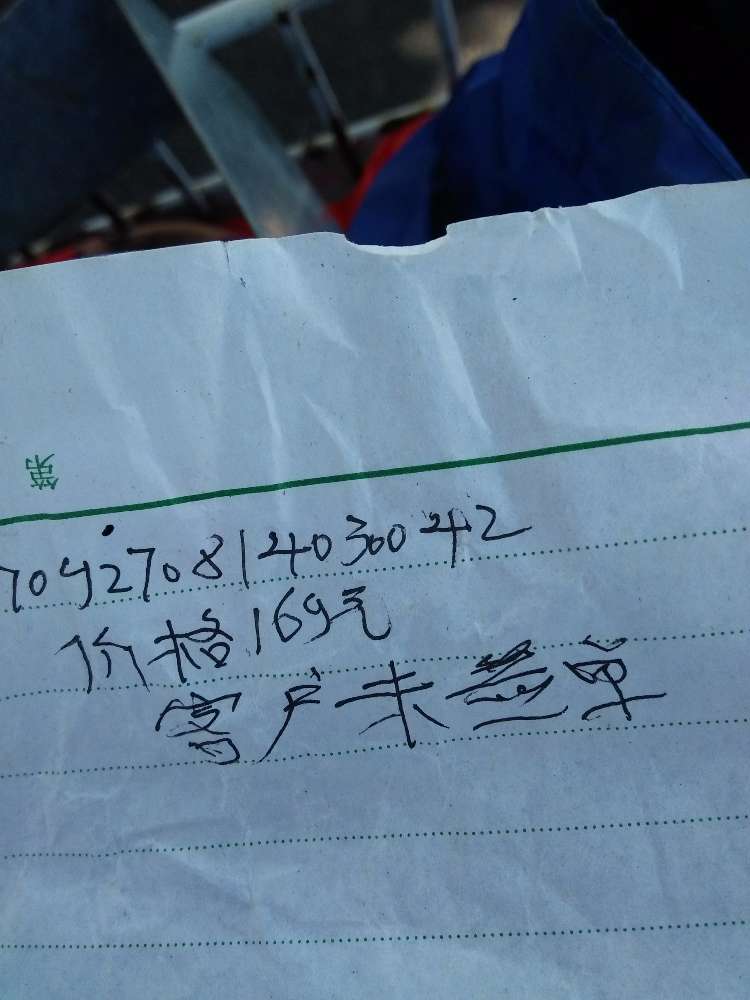 第
709270814030042
价格169元
客户未签单